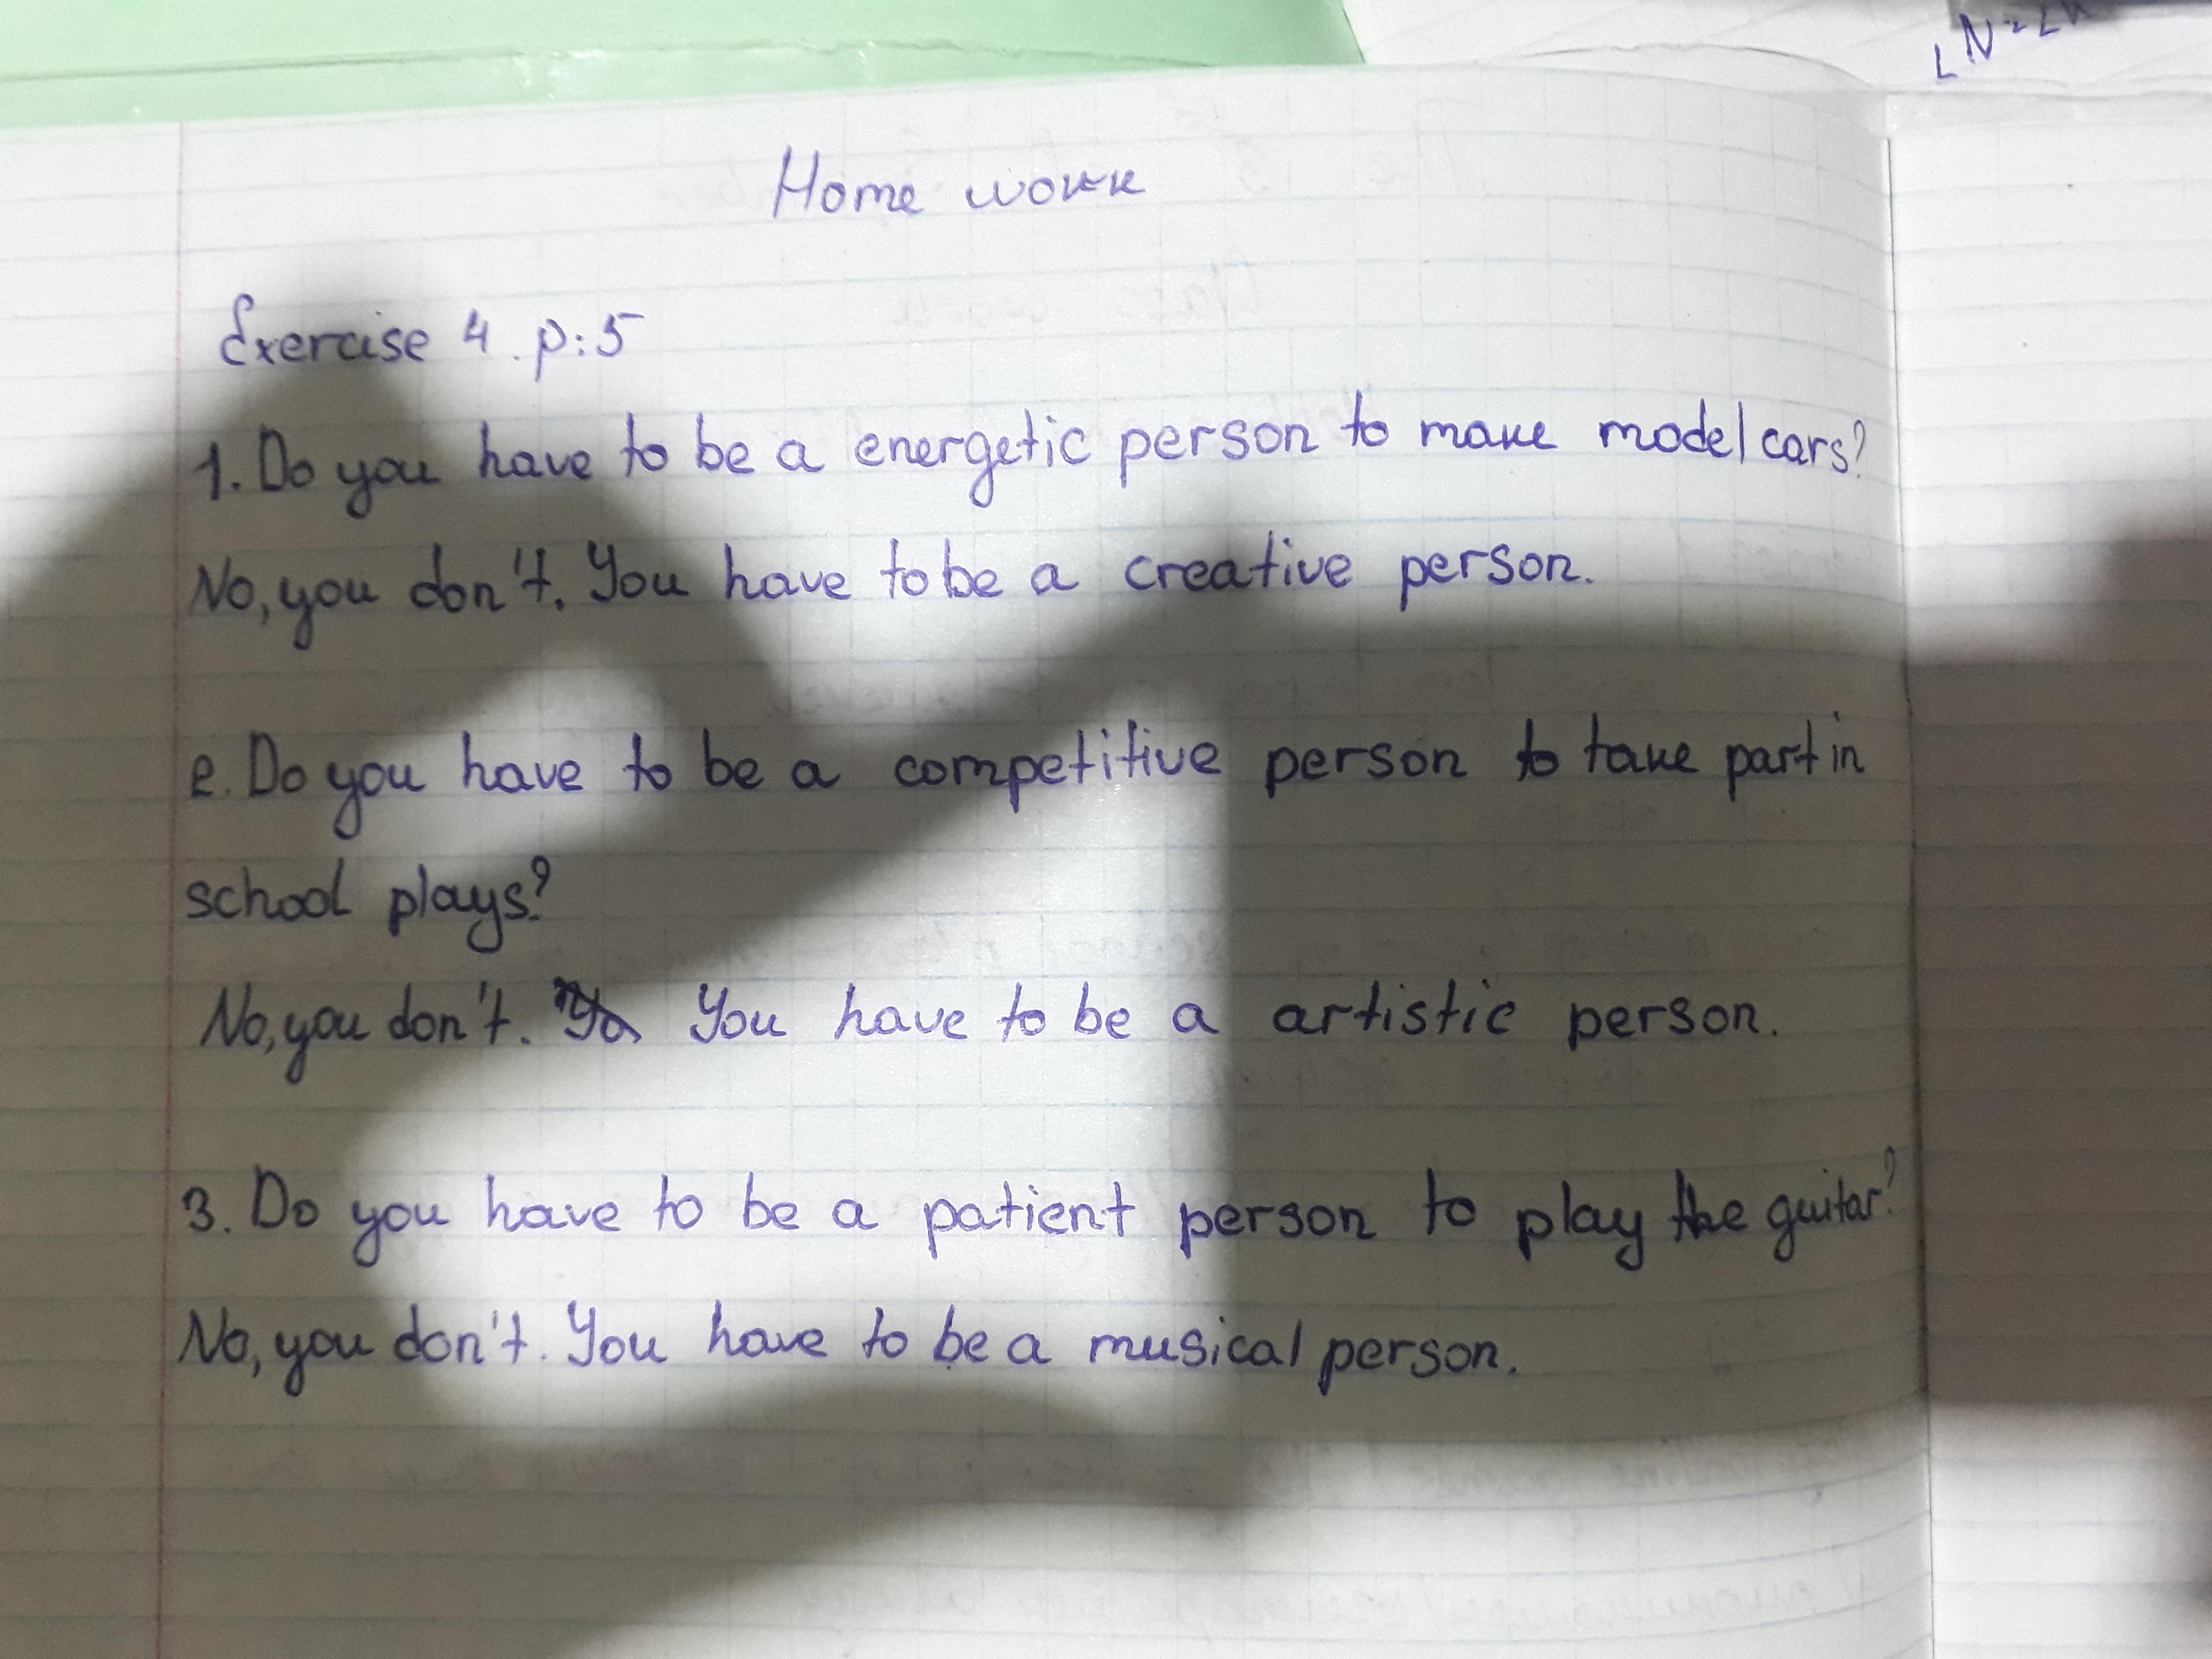 Home work
Exercise 4. p:5
1. Do you have to be a energetic person to make model cars?
No, you don't. You have to be a creative person.
2. Do you have to be a competitive person to take part in
school plays?
No, you don't. You have to be a artistic person.
3. Do you have to be a patient person to play the guitar?
No, you don't. You have to be a musical person.